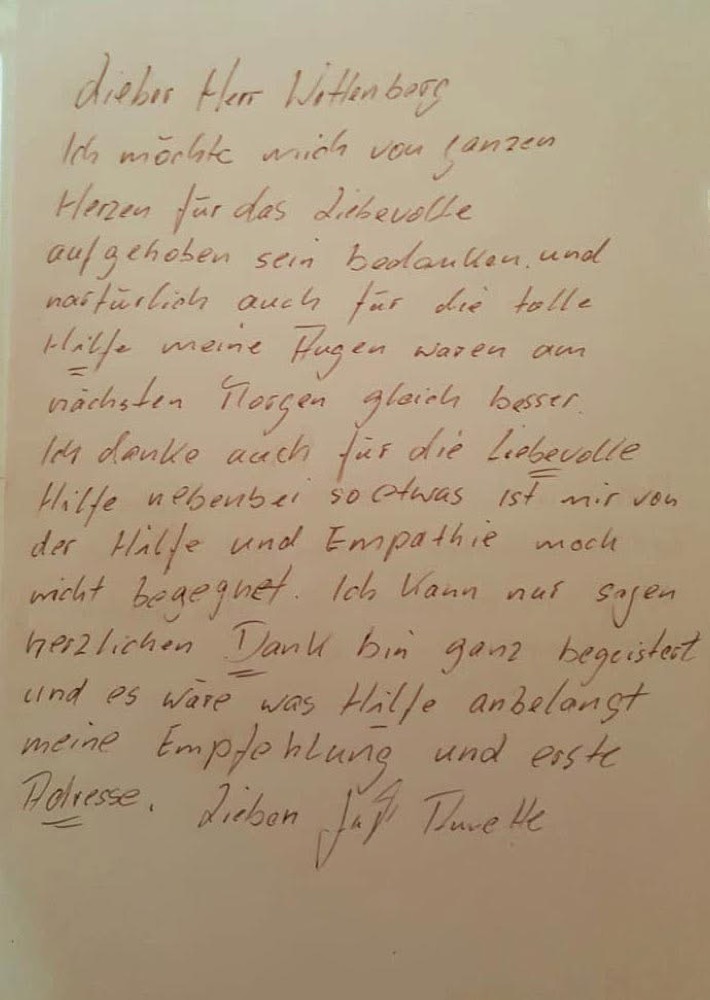 Lieber Herr Wittenberg
Ich möchte mich von ganzen
Herzen für das Liebevolle
aufgehoben sein bedanken. und
natürlich auch für die tolle
Hilfe meine Augen waren am
nächsten Morgen gleich besser.
Ich danke auch für die Liebevolle
Hilfe nebenbei so etwas ist mir von
der Hilfe und Empathie noch
nicht begegnet. Ich kann nur sagen
herzlichen Dank bin ganz begeistert
und es wäre was Hilfe anbelangt
meine Empfehlung und erste
Adresse. Lieben Gruß Annette